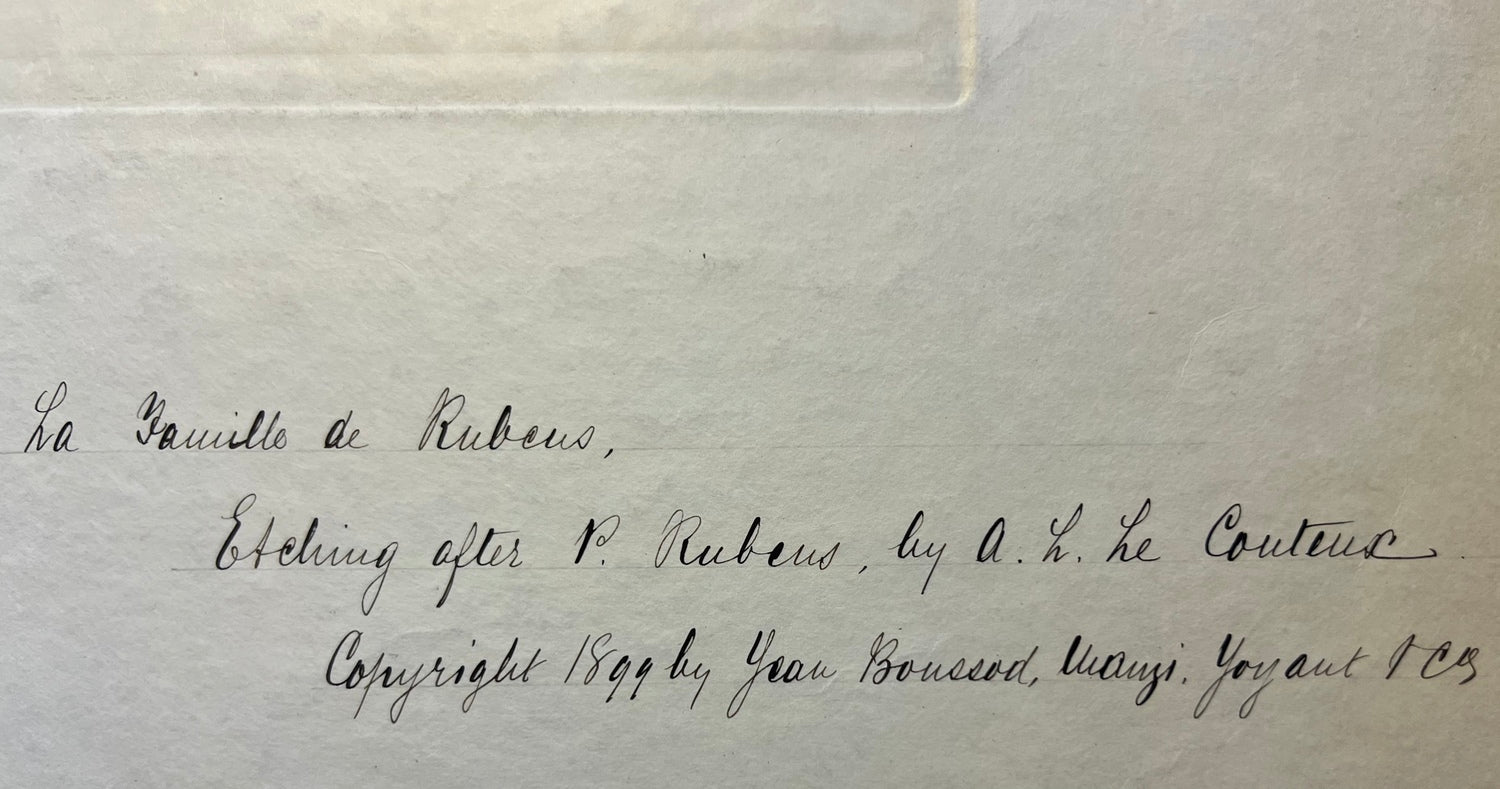 La Famille de Rubens,
Etching after P. Rubens, by A. L. Le Couteux.
Copyright 1899 by Jean Boussod, Manzi, Joyant & Co